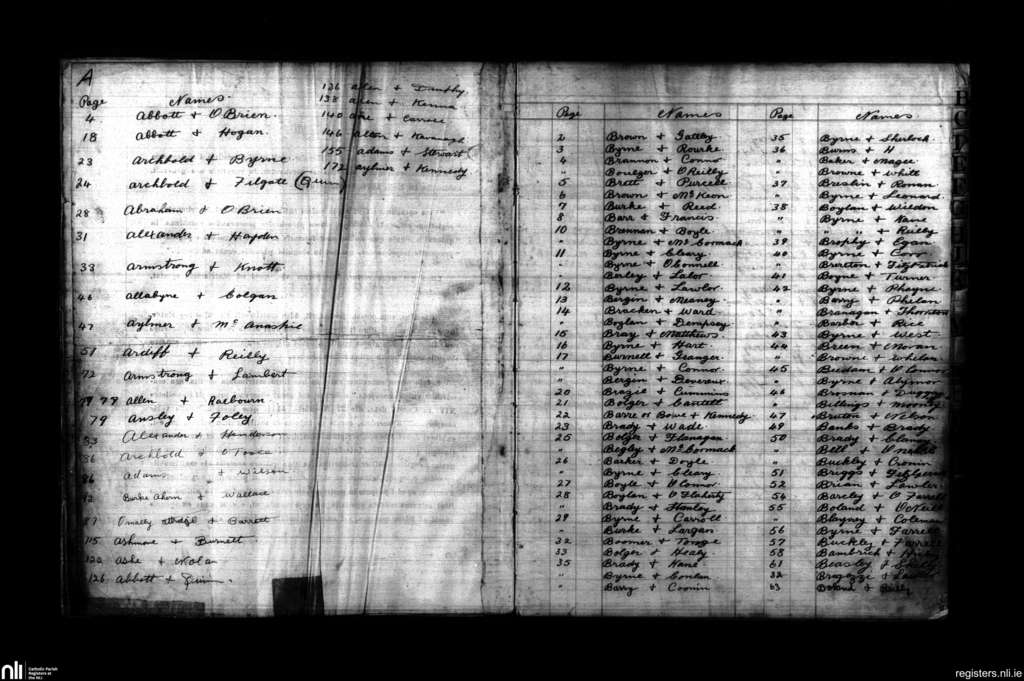 A
Page Names
4 Abbott + O'Brien
18 Abbott + Hogan
23 Archbold + Byrne
24 Archbold + Filgate (Quin)
28 Abraham + O'Brien
31 Alexander + Hayden
33 Armstrong + Knott
46 Allabyne + Colgan
47 Aylmer + Mc Anaskie
51 Ardiff + Reilly
72 Armstrong + Lambert
77 Allen + Raebourn
79 Ansley + Foley
83 Alexander + Henderson
86 Archbold + O'Toole
Adams + Wilson
Burke Ahern + Wallace
+ Barrett
115 Ashmore + Burnett
122 Ashe + Nolan
126 Abbott + Quinn
136 Allen + Dunphy
138 Allen + Kenna
140 + Carrese
146 Alton + Kavanagh
155 Adams + Stewart
172 Aylmer + Kennedy
Page Names Page Names
2 Brown + Gattby
3 Byrne + Rourke
4 Brannon + Connor
" + O'Reilly
5 Brett + Purcell
6 Brown + McKeon
7 Burke + Reed
8 Barr + Francis
10 Brennan + Boyle
" Byrne + McCormack
11 Byrne + Cleary
" Byrne + O'Connell
" Barley + Lalor
12 Byrne + Lawlor
13 Bergin + Meaney
14 Bracken + Ward
" Boylan + Dempsey
15 Bray + Matthews
16 Byrne + Hart
17 Burnett + Granger
" Byrne + Connor
" Bergin + Devereux
20 Brazil + Cummins
21 Bolger + Cantell
22 Barre or Bowe + Kennedy
23 Brady + Wade
25 Bolger + Flanagan
" Begley + McCormack
26 Barker + Doyle
" Byrne + Cleary
27 Boyle + O'Connor
28 Boylan + O'Flaherty
" Brady + Hanley
29 Byrne + Carroll
" Burke + Largan
32 Boomer + Tongge
33 Bolger + Healy
35 Brady + Kane
" Byrne + Conlan
" Barry + Cronin
35 Byrne + Sherlock
36 Burns + H
" Baker + Magee
" Browne + Whitt
37 Breslin + Ronan
" Byrne + Leonard
38 Boylan + Weldon
" Byrne + Kane
" " " + Reilly
39 Brophy + Egan
40 Byrne + Corr
" Bretton + Fitzpatrick
41 Boyne + Turner
42 Byrne + Pheyne
" Barry + Phelan
" Branagan + Thornton
" Barbor + Rice
43 Byrne + West
44 Breen + Moran
" Browne + Whelan
45 Beedam + O'Connor
" Byrne + Alymor
46 Brosnan + Duggan
" Billings +
47 Bruton + Nelson
49 Banks + Brady
50 Brady + Clancy
" Bell + O'Neill
" Buckley + Cronin
51 Briggs +
52 Brian + Lawler
54 Barcley + O'Farrell
55 Boland + O'Neill
" Blayney + Coleman
56 Byrne + Farrell
57 Buckley + Farrell
58 Bambrick +
61 Beasley + Skelly
32
63 Boland + Reilly
nli Catholic Parish
Registers at
the NLI
registers.nli.ie